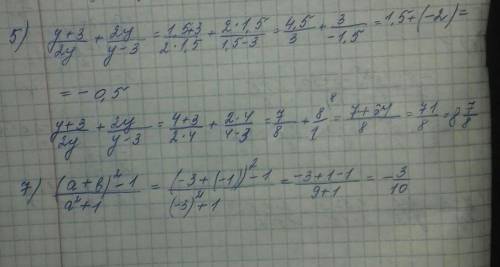 5) (y+3)/(2y) + (2y)/(y-3) = (1,5+3)/(2·1,5) + (2·1,5)/(1,5-3) = (4,5)/3 + 3/(-1,5) = 1,5+(-2) =
= -0,5
(y+3)/(2y) + (2y)/(y-3) = (4+3)/(2·4) + (2·4)/(4-3) = 7/8 + 8/1 ⁸ = (7+64)/8 = 71/8 = 8 7/8
7) ((a+b)²-1)/(a²+1) = ((-3+(-1))²-1)/((-3)²+1) = (-3+1-1)/(9+1) = -3/10